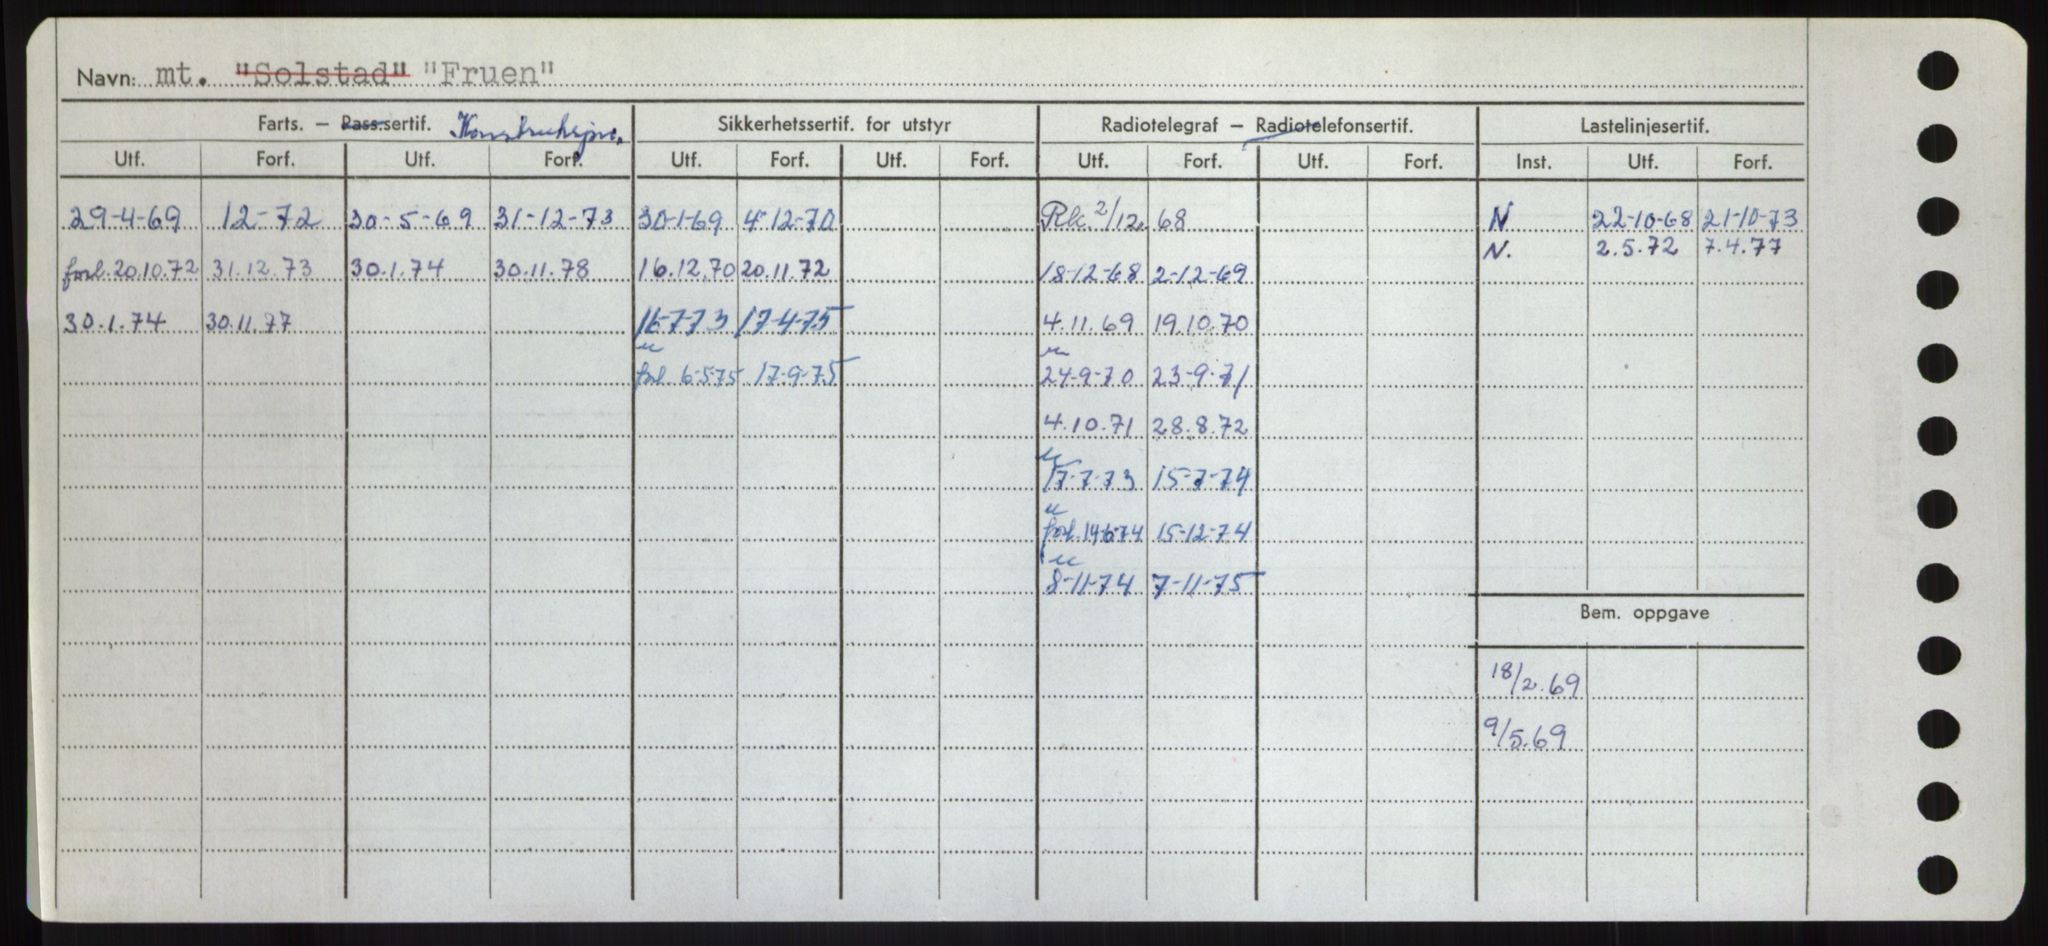 Navn: mt. "Solstad" "Fruen"
Farts. — Pass.sertif. Konstruksjons. Sikkerhetssertif. for utstyr Radiotelegraf — Radiotelefonsertif. Lastelinjesertif.
Utf. Forf. Utf. Forf. Utf. Forf. Utf. Forf. Utf. Forf. Utf. Forf. Inst. Utf. Forf.
29-4-69 12-72 30-5-69 31-12-73 30-1-69 4-12-70 Rk 2/12 68 N 22-10-68 21-10-73
N. 2.5.72 7.4.77
forl. 20.10.72 31.12.73 30.1.74 30.11.78 16.12.70 20.11.72 18-12-68 2-12-69
30.1.74 30.11.77 16-7-73 17-4-75 4.11.69 19.10.70
u u
forl 6-5-75 17-9-75 24-9-70 23-9-71
4.10.71 28.8.72
u
17-7-73 15-7-74
u
forl. 14-6-74 15-12-74
u
8-11-74 7-11-75
Bem. oppgave
18/2.69
9/5.69